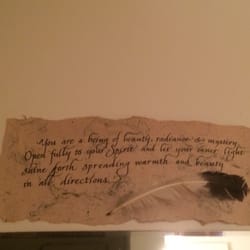 You are a being of beauty, radiance & mystery.
Open fully to your Spirit and let your inner light
shine forth spreading warmth and beauty
in all directions.